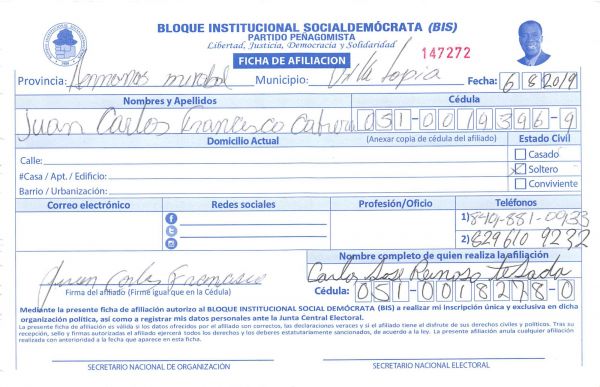 BLOQUE INSTITUCIONAL SOCIALDEMÓCRATA (BIS)
PARTIDO PEÑAGOMISTA
Libertad, Justicia, Democracia y Solidaridad
FICHA DE AFILIACION
147272
Provincia: Hermanas mirabal Municipio: Villa tapia Fecha: 6 8 2019
Nombres y Apellidos Cédula
Juan Carlos Francisco Cabrera 051-0019396-9
Domicilio Actual (Anexar copia de cédula del afiliado) Estado Civil
Calle: Casado
#Casa / Apt. / Edificio: Soltero
Barrio / Urbanización: Conviviente
Correo electrónico Redes sociales Profesión/Oficio Teléfonos
1) 849-881-0933
2) 829 610 9232
Nombre completo de quien realiza la afiliación
Juan Carlos Francisco Carlos Jose Reinoso
Firma del afiliado (Firme igual que en la Cédula) Cédula: 051-0018278-0
Mediante la presente ficha de afiliación autorizo al BLOQUE INSTITUCIONAL SOCIAL DEMÓCRATA (BIS) a realizar mi inscripción única y exclusiva en dicha
organización política, así como a registrar mis datos personales ante la Junta Central Electoral.
La presente ficha de afiliación es válida si los datos ofrecidos por el afiliado son correctos, las declaraciones veraces y si el afiliado tiene el disfrute de sus derechos civiles y políticos. Tras su
recepción, sello y firmas autorizadas el afiliado ejercerá todos los derechos y los deberes estatutariamente sancionados, de acuerdo a la ley. La presente afiliación anula cualquier afiliación
realizada con anterioridad a la fecha que aparece en esta ficha.
SECRETARIO NACIONAL DE ORGANIZACIÓN SECRETARIO NACIONAL ELECTORAL